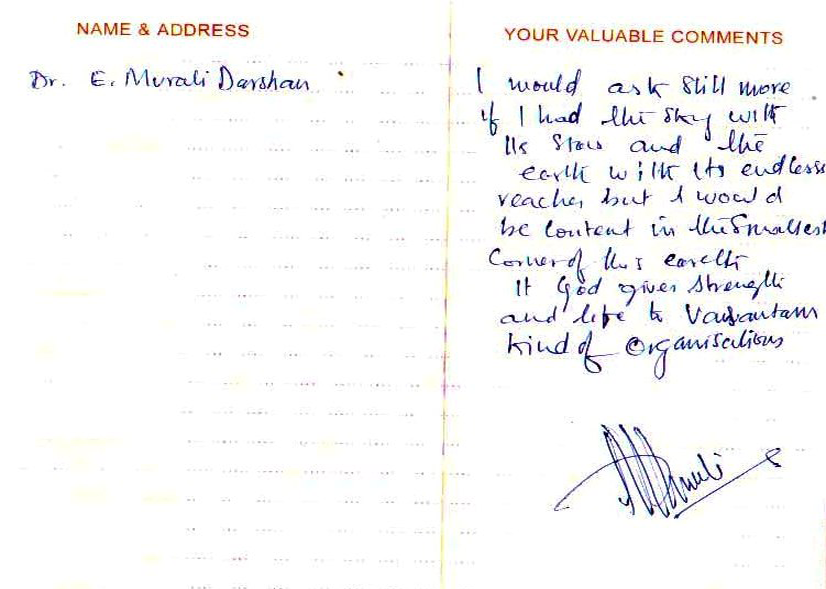 NAME & ADDRESS
Dr. E. Murali Darshan
YOUR VALUABLE COMMENTS
I would ask still more
if I had the sky with
its stars and the
earth with its endless
reaches but I would
be content in the smallest
corner of this earth
If God gives strength
and life to Vasantam
kind of Organisations